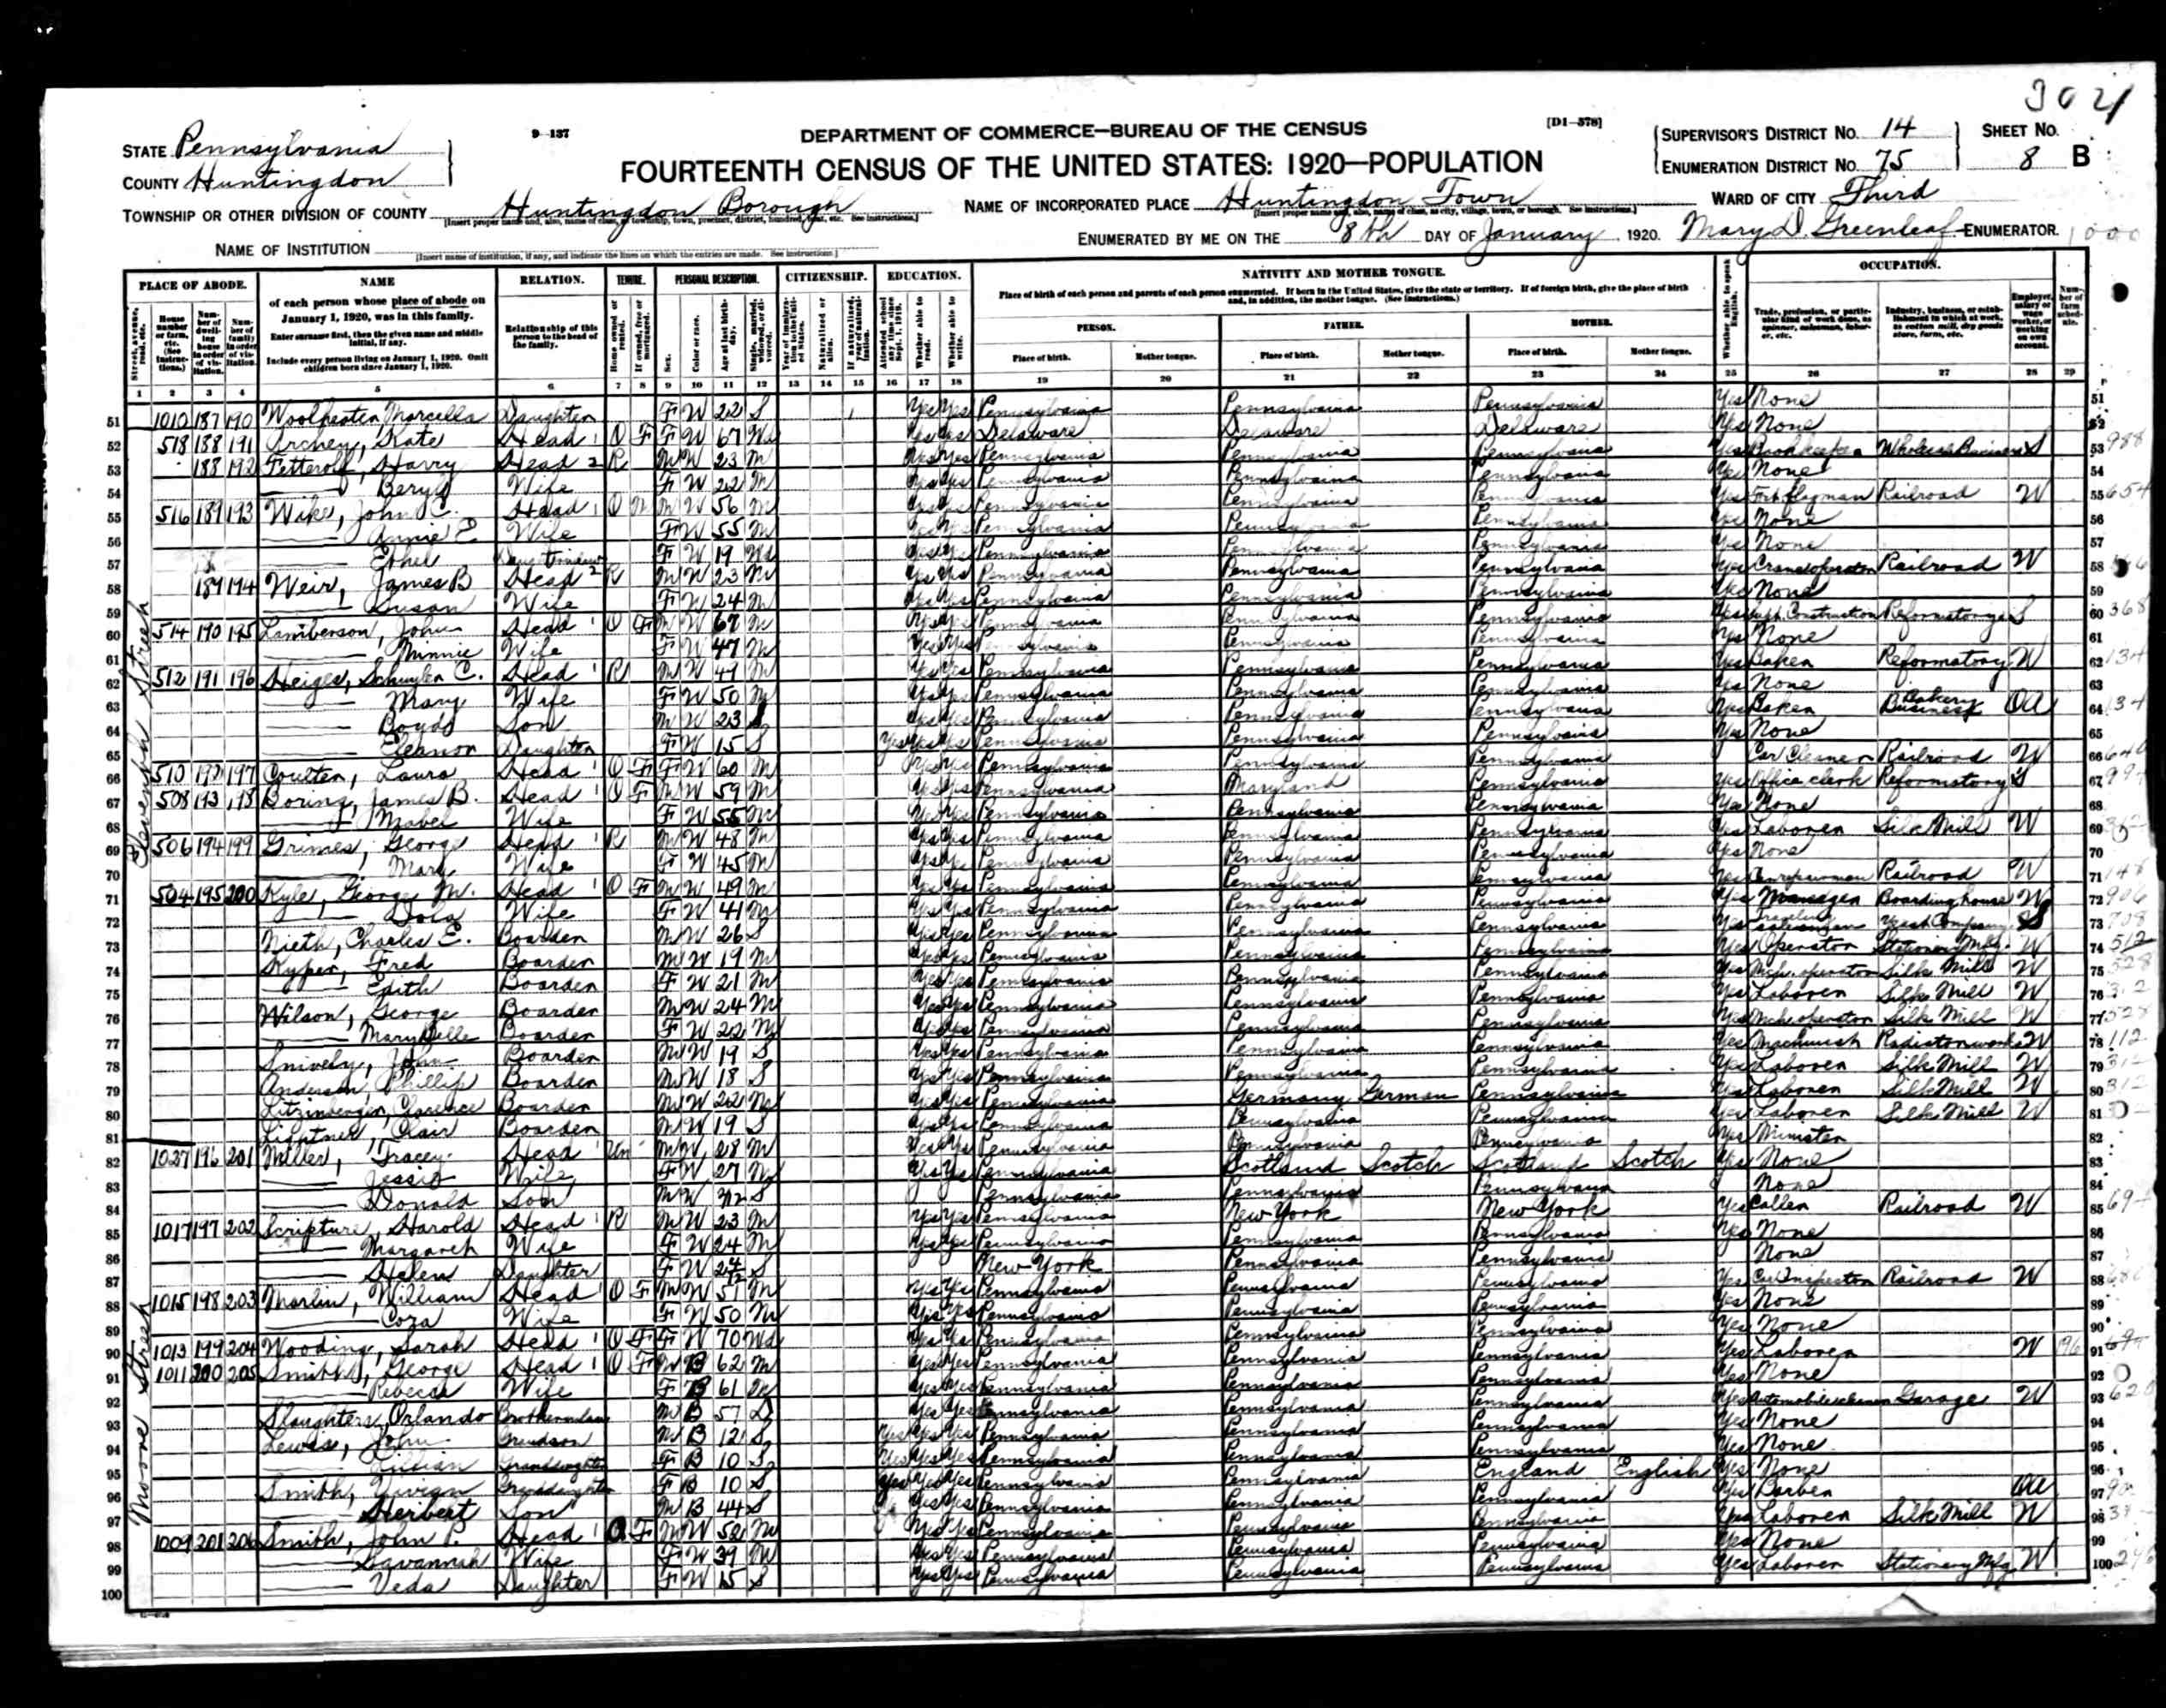 3021
STATE Pennsylvania
9-137
DEPARTMENT OF COMMERCE—BUREAU OF THE CENSUS
[D1-578]
SUPERVISOR'S DISTRICT No. 14
SHEET No.
COUNTY Huntingdon
FOURTEENTH CENSUS OF THE UNITED STATES: 1920—POPULATION
ENUMERATION DISTRICT No. 75
8 B
TOWNSHIP OR OTHER DIVISION OF COUNTY Huntingdon Borough
NAME OF INCORPORATED PLACE Huntingdon Town
WARD OF CITY Third
NAME OF INSTITUTION
ENUMERATED BY ME ON THE 8th DAY OF January, 1920. Mary D. Greenleaf ENUMERATOR.
PLACE OF ABODE. NAME RELATION. TENURE. PERSONAL DESCRIPTION. CITIZENSHIP. EDUCATION. NATIVITY AND MOTHER TONGUE. OCCUPATION.
of each person whose place of abode on January 1, 1920, was in this family.
Enter surname first, then the given name and middle initial, if any.
Include every person living on January 1, 1920. Omit children born since January 1, 1920.
Relationship of this person to the head of the family.
Place of birth of each person and parents of each person enumerated. If born in the United States, give the state or territory. If of foreign birth, give the place of birth and, in addition, the mother tongue. (See instructions.)
PERSON. FATHER. MOTHER.
Place of birth. Mother tongue. Place of birth. Mother tongue. Place of birth. Mother tongue.
1 2 3 4 5 6 7 8 9 10 11 12 13 14 15 16 17 18 19 20 21 22 23 24 25 26 27 28 29
Eleventh Street
51 1010 187 190 Marcella Daughter F W 22 S Yes Yes Pennsylvania Pennsylvania Pennsylvania Yes None
52 518 188 191 Archey, Kate Head O F F W 67 Wd Yes Yes Delaware Delaware Delaware Yes None
53 188 192 Fetterolf, Harry Head 2 R M W 23 M Yes Yes Pennsylvania Pennsylvania Pennsylvania Yes Bookkeeper
54 Beryl Wife F W 22 M Yes Yes Pennsylvania Pennsylvania Pennsylvania Yes None
55 516 189 193 Wike, John C. Head O M M W 56 M Yes Yes Pennsylvania Pennsylvania Pennsylvania Yes flagman Railroad W
56 Annie E Wife F W 55 M Yes Yes Pennsylvania Pennsylvania Pennsylvania Yes None
57 Ethel F W 19 Wd Yes Yes Pennsylvania Pennsylvania Pennsylvania Yes None
58 189 194 Weir, James B Head 2 R M W 23 M Yes Yes Pennsylvania Pennsylvania Pennsylvania Yes Crane operator Railroad W
59 Susan Wife F W 24 M Yes Yes Pennsylvania Pennsylvania Pennsylvania Yes None
60 514 190 195 Lamberson, John Head O F M W 67 M Yes Yes Pennsylvania Pennsylvania Pennsylvania Yes Supt. Construction Reformatory S
61 Minnie Wife F W 47 M Yes Yes Pennsylvania Pennsylvania Pennsylvania Yes None
62 512 191 196 Steiger, Schuyler C. Head R M W 49 M Yes Yes Pennsylvania Pennsylvania Pennsylvania Yes Baker Reformatory W
63 Mary Wife F W 50 M Yes Yes Pennsylvania Pennsylvania Pennsylvania Yes None
64 Boyd Son M W 23 S Yes Yes Pennsylvania Pennsylvania Pennsylvania Yes Baker Bakery Business OA
65 Eleanor Daughter F W 15 S Yes Yes Yes Pennsylvania Pennsylvania Pennsylvania Yes None
66 510 192 197 Coulter, Laura Head O F F W 60 M Yes Yes Pennsylvania Pennsylvania Pennsylvania Car Cleaner Railroad W
67 508 193 198 Boring, James B. Head O F M W 59 M Yes Yes Pennsylvania Maryland Pennsylvania Yes Office clerk Reformatory S
68 Mabel Wife F W 55 M Yes Yes Pennsylvania Pennsylvania Pennsylvania Yes None
69 506 194 199 Grimes, George Head R M W 48 M Yes Yes Pennsylvania Pennsylvania Pennsylvania Yes Laborer Silk Mill W
70 Mary Wife F W 45 M Yes Yes Pennsylvania Pennsylvania Pennsylvania Yes None
71 504 195 200 Kyle, George M. Head O F M W 49 M Yes Yes Pennsylvania Pennsylvania Pennsylvania Yes Car repairman Railroad W
72 Wife F W 41 M Yes Yes Pennsylvania Pennsylvania Pennsylvania Yes Manager Boarding house W
73 Nieth, Charles E. Boarder M W 26 S Yes Yes Pennsylvania Pennsylvania Pennsylvania Yes Traveling salesman Yeast Company
74 Kyper, Fred Boarder M W 19 M Yes Yes Pennsylvania Pennsylvania Pennsylvania Yes Operator Stationery Mfg. W
75 Edith Boarder F W 21 M Yes Yes Pennsylvania Pennsylvania Pennsylvania Yes Mch. operator Silk Mill W
76 Wilson, George Boarder M W 24 M Yes Yes Pennsylvania Pennsylvania Pennsylvania Yes Laborer Silk Mill W
77 Mary Belle Boarder F W 22 M Yes Yes Pennsylvania Pennsylvania Pennsylvania Yes Mch. operator Silk Mill W
78 Snively, John Boarder M W 19 S Yes Yes Pennsylvania Pennsylvania Pennsylvania Yes Machinist Radiator works W
79 Anderson, Phillip Boarder M W 18 S Yes Yes Pennsylvania Pennsylvania Pennsylvania Yes Laborer Silk Mill W
80 Litzinberger, Clarence Boarder M W 22 M Yes Yes Pennsylvania Germany German Pennsylvania Yes Laborer Silk Mill W
81 Lightner, Clair Boarder M W 19 S Yes Yes Pennsylvania Pennsylvania Pennsylvania Yes Laborer Silk Mill W
Moore Street
82 1027 196 201 Miller, Tracey Head Un M W 28 M Yes Yes Pennsylvania Pennsylvania Pennsylvania Yes Minister
83 Jessie Wife F W 27 M Yes Yes Pennsylvania Scotland Scotch Scotland Scotch Yes None
84 Donald Son M W S Pennsylvania Pennsylvania Pennsylvania None
85 1017 197 202 Scripture, Harold Head R M W 23 M Yes Yes Pennsylvania New York New York Yes Caller Railroad W
86 Margaret Wife F W 24 M Yes Yes Pennsylvania Pennsylvania Pennsylvania Yes None
87 Helen Daughter F W 2 4/12 S New York Pennsylvania Pennsylvania None
88 1015 198 203 Marlin, William Head O F M W 51 M Yes Yes Pennsylvania Pennsylvania Pennsylvania Yes Car Inspector Railroad W
89 Cora Wife F W 50 M Yes Yes Pennsylvania Pennsylvania Pennsylvania Yes None
90 1013 199 204 Wooding, Sarah Head O F F W 70 Wd Yes Yes Pennsylvania Pennsylvania Pennsylvania Yes None
91 1011 200 205 Smith, George Head O F M B 62 M Yes Yes Pennsylvania Pennsylvania Pennsylvania Yes Laborer W
92 Rebecca Wife F B 61 M Yes Yes Pennsylvania Pennsylvania Pennsylvania Yes None
93 Slaughters, Orlando Brother in law M B 57 D Yes Yes Pennsylvania Pennsylvania Pennsylvania Yes Garage W
94 Lewis, John Grandson M B 12 S Yes Yes Yes Pennsylvania Pennsylvania Pennsylvania Yes None
95 Lilian Granddaughter F B 10 S Yes Yes Yes Pennsylvania Pennsylvania Pennsylvania Yes None
96 Smith, Vivian Granddaughter F B 10 S Yes Yes Yes Pennsylvania Pennsylvania England English Yes None
97 Herbert Son M B 44 S Yes Yes Pennsylvania Pennsylvania Pennsylvania Yes Barber OA
98 1009 201 206 Smith, John P. Head O F M W 52 M Yes Yes Pennsylvania Pennsylvania Pennsylvania Yes Laborer Silk Mill W
99 Savannah Wife F W 39 M Yes Yes Pennsylvania Pennsylvania Pennsylvania Yes None
100 Veda Daughter F W 15 S Yes Yes Pennsylvania Pennsylvania Pennsylvania Yes Laborer Stationery Mfg W